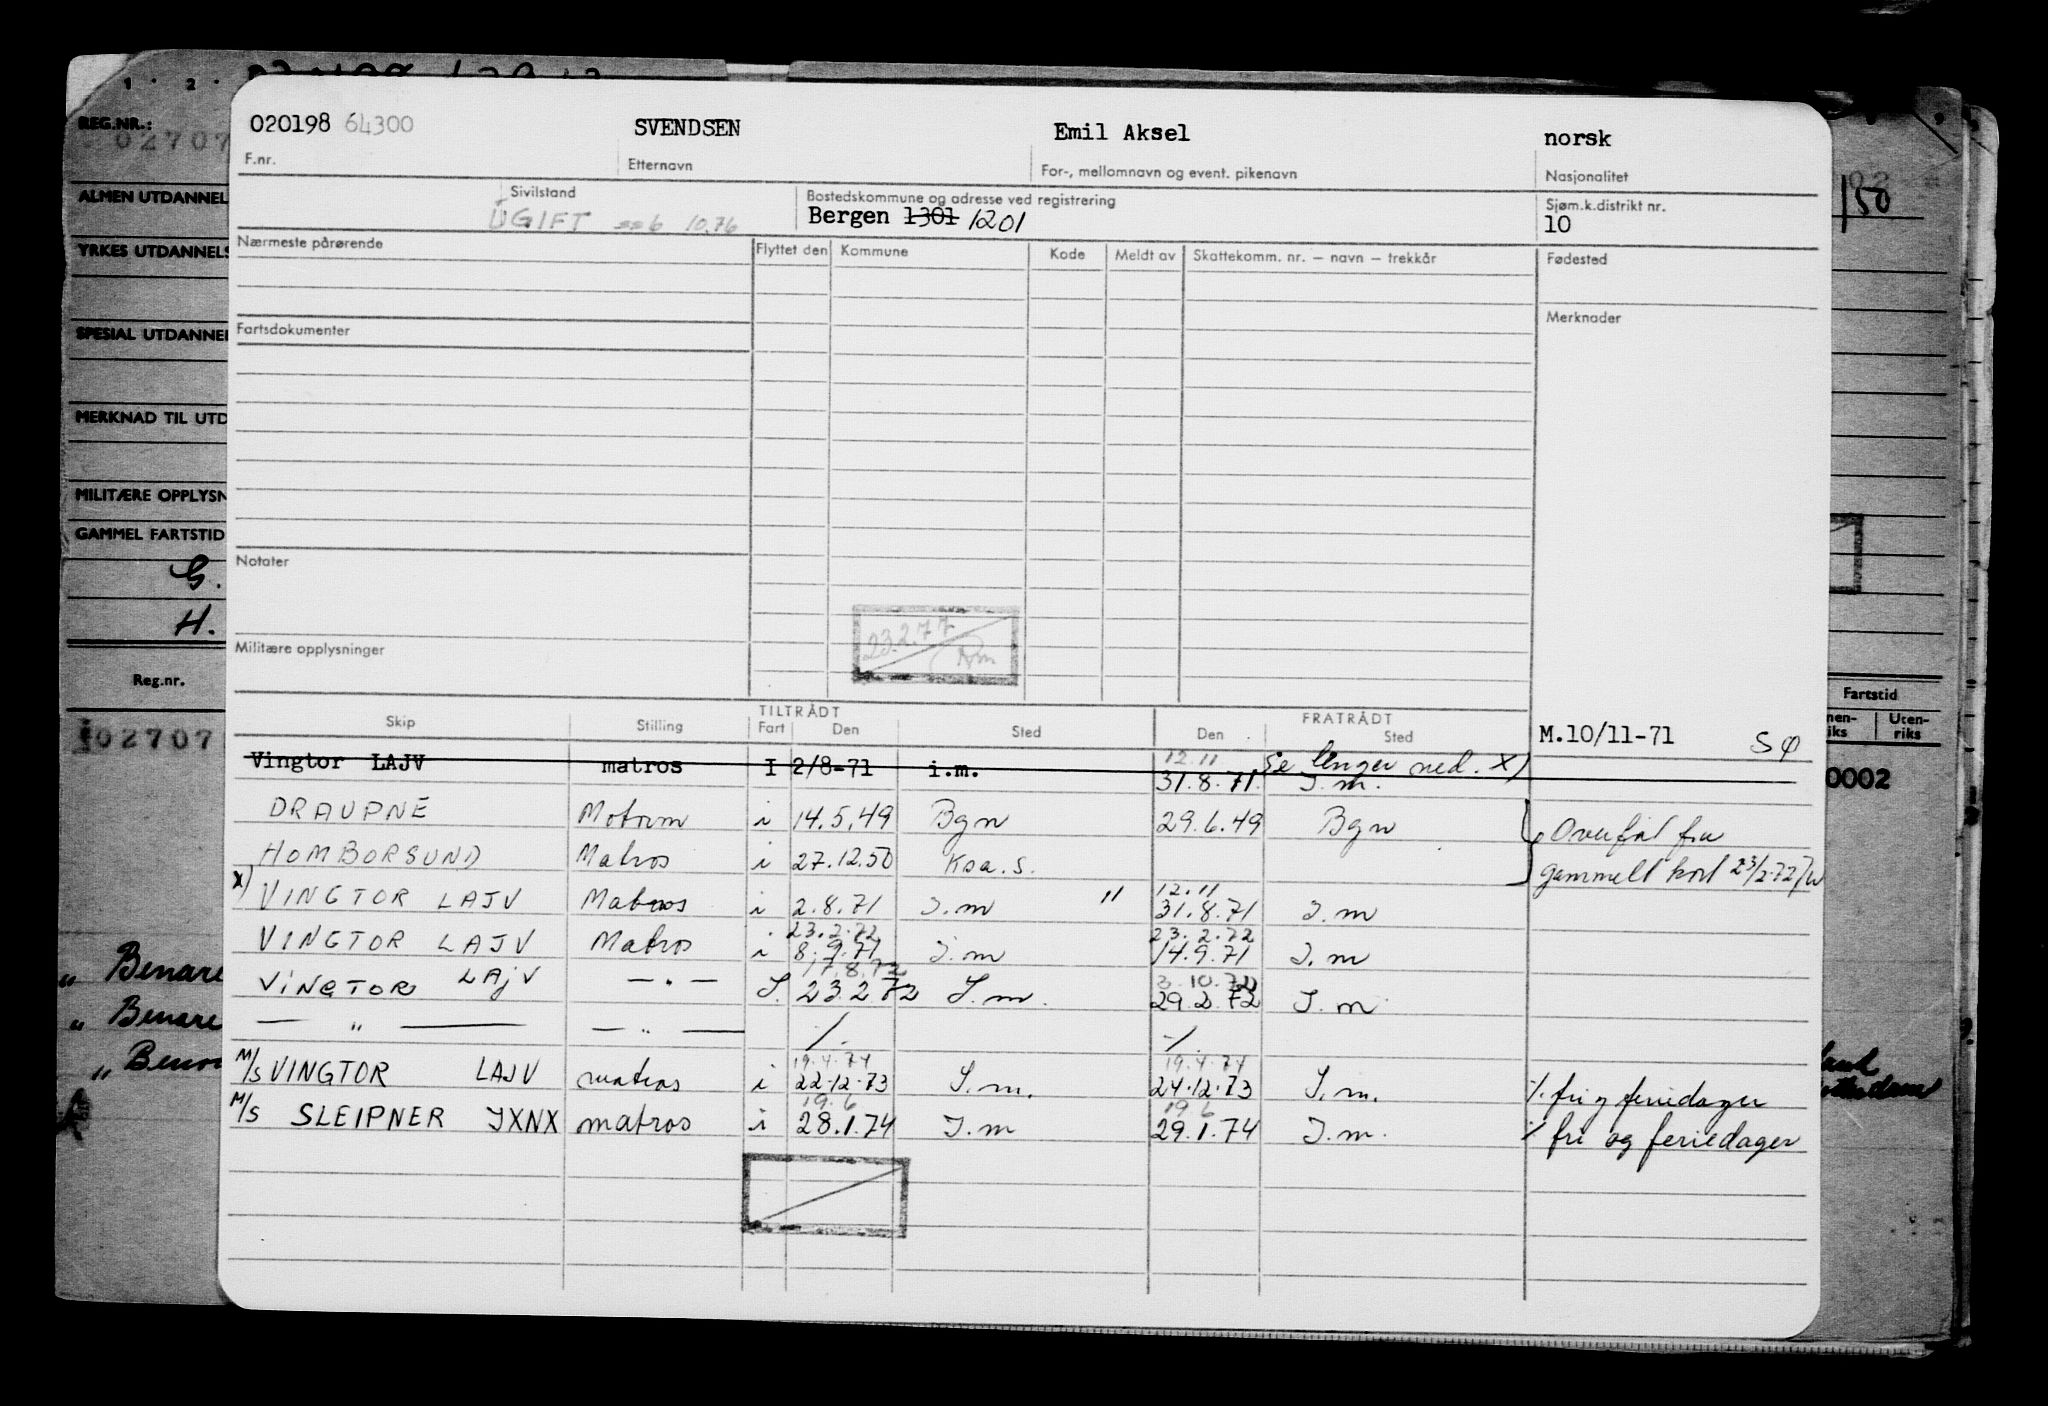 REG.NR.:
02707
ALMEN UTDANNEL
YRKES UTDANNELS
SPESIAL UTDANNEL
MERKNAD TIL UTD
MILITÆRE OPPLYSN
GAMMEL FARTSTID
G.
H.
Reg.nr.
02707
" Benare
" Benare
"
020198 64300 SVENDSEN Emil Aksel norsk
F.nr. Etternavn For-, mellomnavn og event. pikenavn Nasjonalitet
Sivilstand Bostedskommune og adresse ved registrering Sjøm.k.distrikt nr.
UGIFT 10.76 Bergen 1301 1201 10
Nærmeste pårørende Flyttet den Kommune Kode Meldt av Skattekomm. nr. – navn – trekkår Fødested
Fartsdokumenter Merknader
Notater
23.2.77
Militære opplysninger
Skip Stilling TILTRÅDT Fart Den Sted FRATRÅDT Den Sted M.10/11-71 SØ
12.11 Se lenger ned. X)
Vingtor LAJV matros I 2/8-71 i.m. 31.8.71. I.m.
DRAUPNE Motorm i 14.5.49 Bgn 29.6.49 Bgn Overført fra
HOMBORSUND Matros i 27.12.50 Ksa.S. gammelt kort 23/2-72/
12.11
X) VINGTOR LAJV Matros i 2.8.71 I.m " 31.8.71 I.m
23.2.72 23.2.72
VINGTOR LAJV Matros i 8.9.71 I.m 14.9.71 I.m
17.8.72 3.10.72
VINGTOR LAJV — " — I. 23.2.72 I.m. 29.2.72 I.m
— " — — " — ./. ./.
19.4.74 19.4.74
M/S VINGTOR LAJV matros i 22.12.73 I.m. 24.12.73 I.m. ./. fri og feriedager
19.6 19.6
M/S SLEIPNER JXNX matros i 28.1.74 I.m 29.1.74 I.m. ./. fri og feriedager
02
/50
Fartstid
Uten-
riks
0002